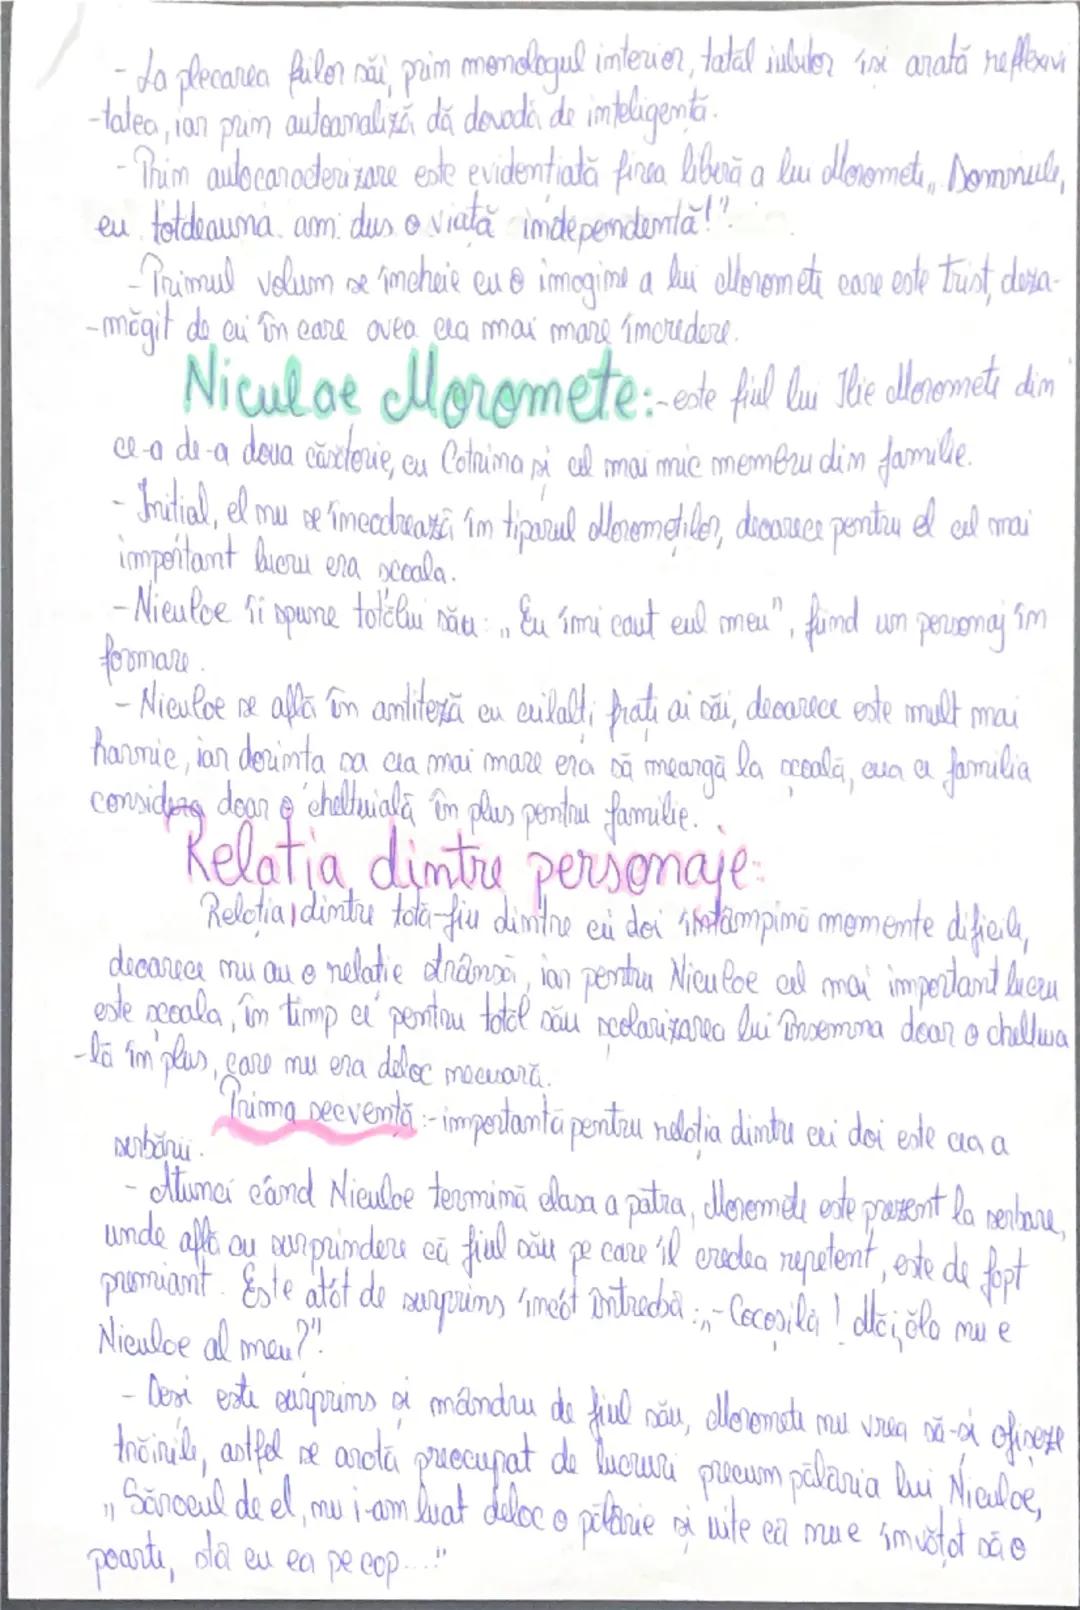 - La plecarea fiilor săi, prim monologul interior, tatăl iubitor își arată reflexivi
-tatea, iar prim autoanaliză dă dovadă de inteligență.
- Prim autocaracterizare este evidențiată firea liberă a lui Moromete „ Domnule,
eu totdeauna am dus o viață independentă!".
- Primul volum se încheie cu o imagine a lui Moromete care este trist, deza-
-măgit de cei în care avea cea mai mare încredere.
Niculae Moromete: - este fiul lui Ilie Moromete din
ce-a de-a doua căsătorie, cu Catrina și cel mai mic membru din familie.
- Inițial, el nu se încadrează în tiparul Moromeților, deoarece pentru el cel mai
important lucru era școala.
- Niculae îi spune tatălui său: „ Eu îmi caut eul meu", fiind un personaj în
formare.
- Niculae se află în antiteză cu ceilalți frați ai săi, deoarece este mult mai
harnic, iar dorința sa cea mai mare era să meargă la școală, ceea ce familia
considera doar o cheltuială în plus pentru familie.
Relația dintre personaje:
Relația dintre tată-fiu dintre cei doi întâmpină momente dificile,
deoarece nu au o relație strânsă, iar pentru Niculae cel mai important lucru
este școala, în timp ce pentru tatăl său școlarizarea lui însemna doar o cheltuia
-lă în plus, care nu era deloc necesară.
Prima secvență: - importantă pentru relația dintre cei doi este cea a
serbării.
- Atunci când Niculae termină clasa a patra, Moromete este prezent la serbare,
unde află cu surprindere că fiul său pe care îl credea repetent, este de fapt
premiant. Este atât de surprins încât întreabă: „- Cocoșilă ! Măi, ăla nu e
Niculae al meu?"!
- Deși este surprins și mândru de fiul său, Moromete nu vrea să-și afișeze
trăirile, astfel se arată preocupat de lucruri precum pălăria lui Niculae,
„ Săracul de el, nu i-am luat deloc o pălărie și uite că nu e învățat să o
poarte, stă cu ea pe cap...."